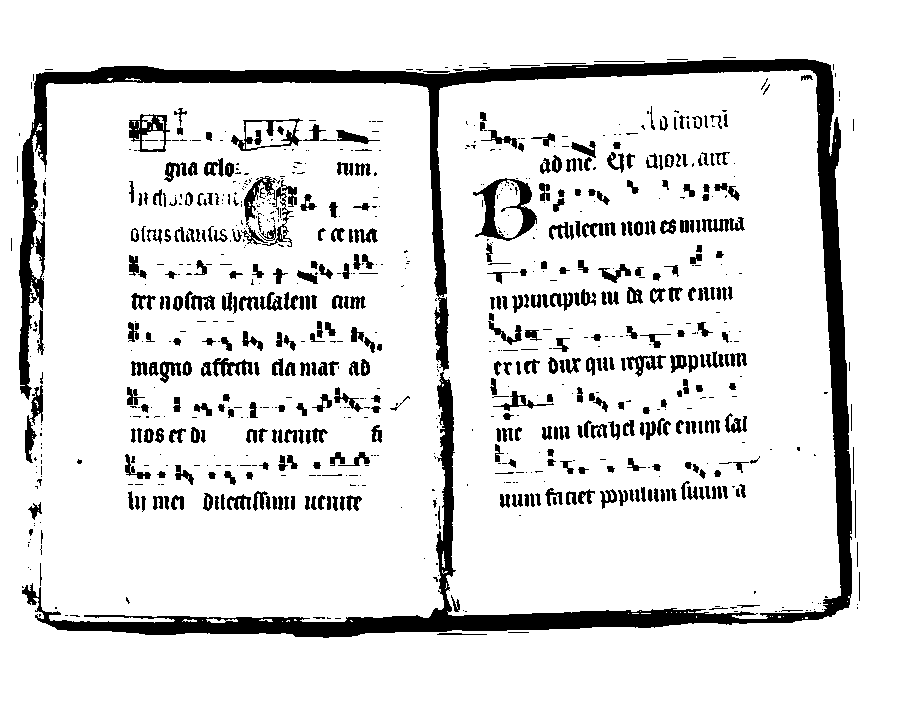 gna celo rum.
In choro
e ce ma
ter nostra iherusalem cum
magno affectu clamat ad
nos et di cit uenite fi
lij mei dilectissimi uenite
ad me.
B ethleem non es minima
in principibꝫ iu da ex te enim
exiet dux qui regat populum
me um israhel ipse enim sal
uum faciet populum suum a